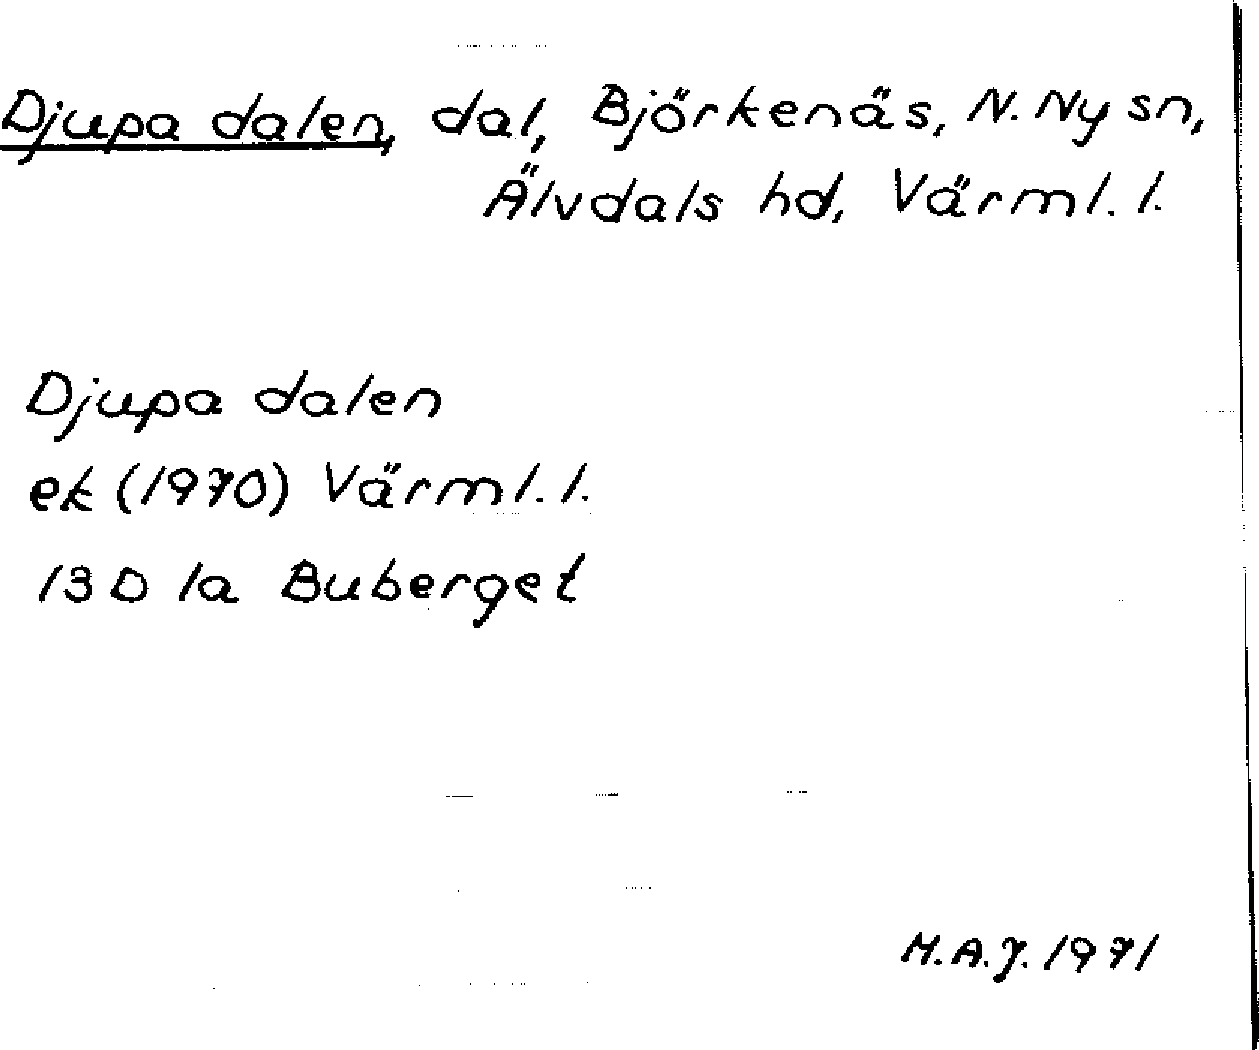 Djupa dalen, dal, Björkenäs, N. Ny sn,
Älvdals hd, Värml. l.
Djupa dalen
ek (1970) Värml. l.
13 D 1a Buberget
M.A.J. 1971